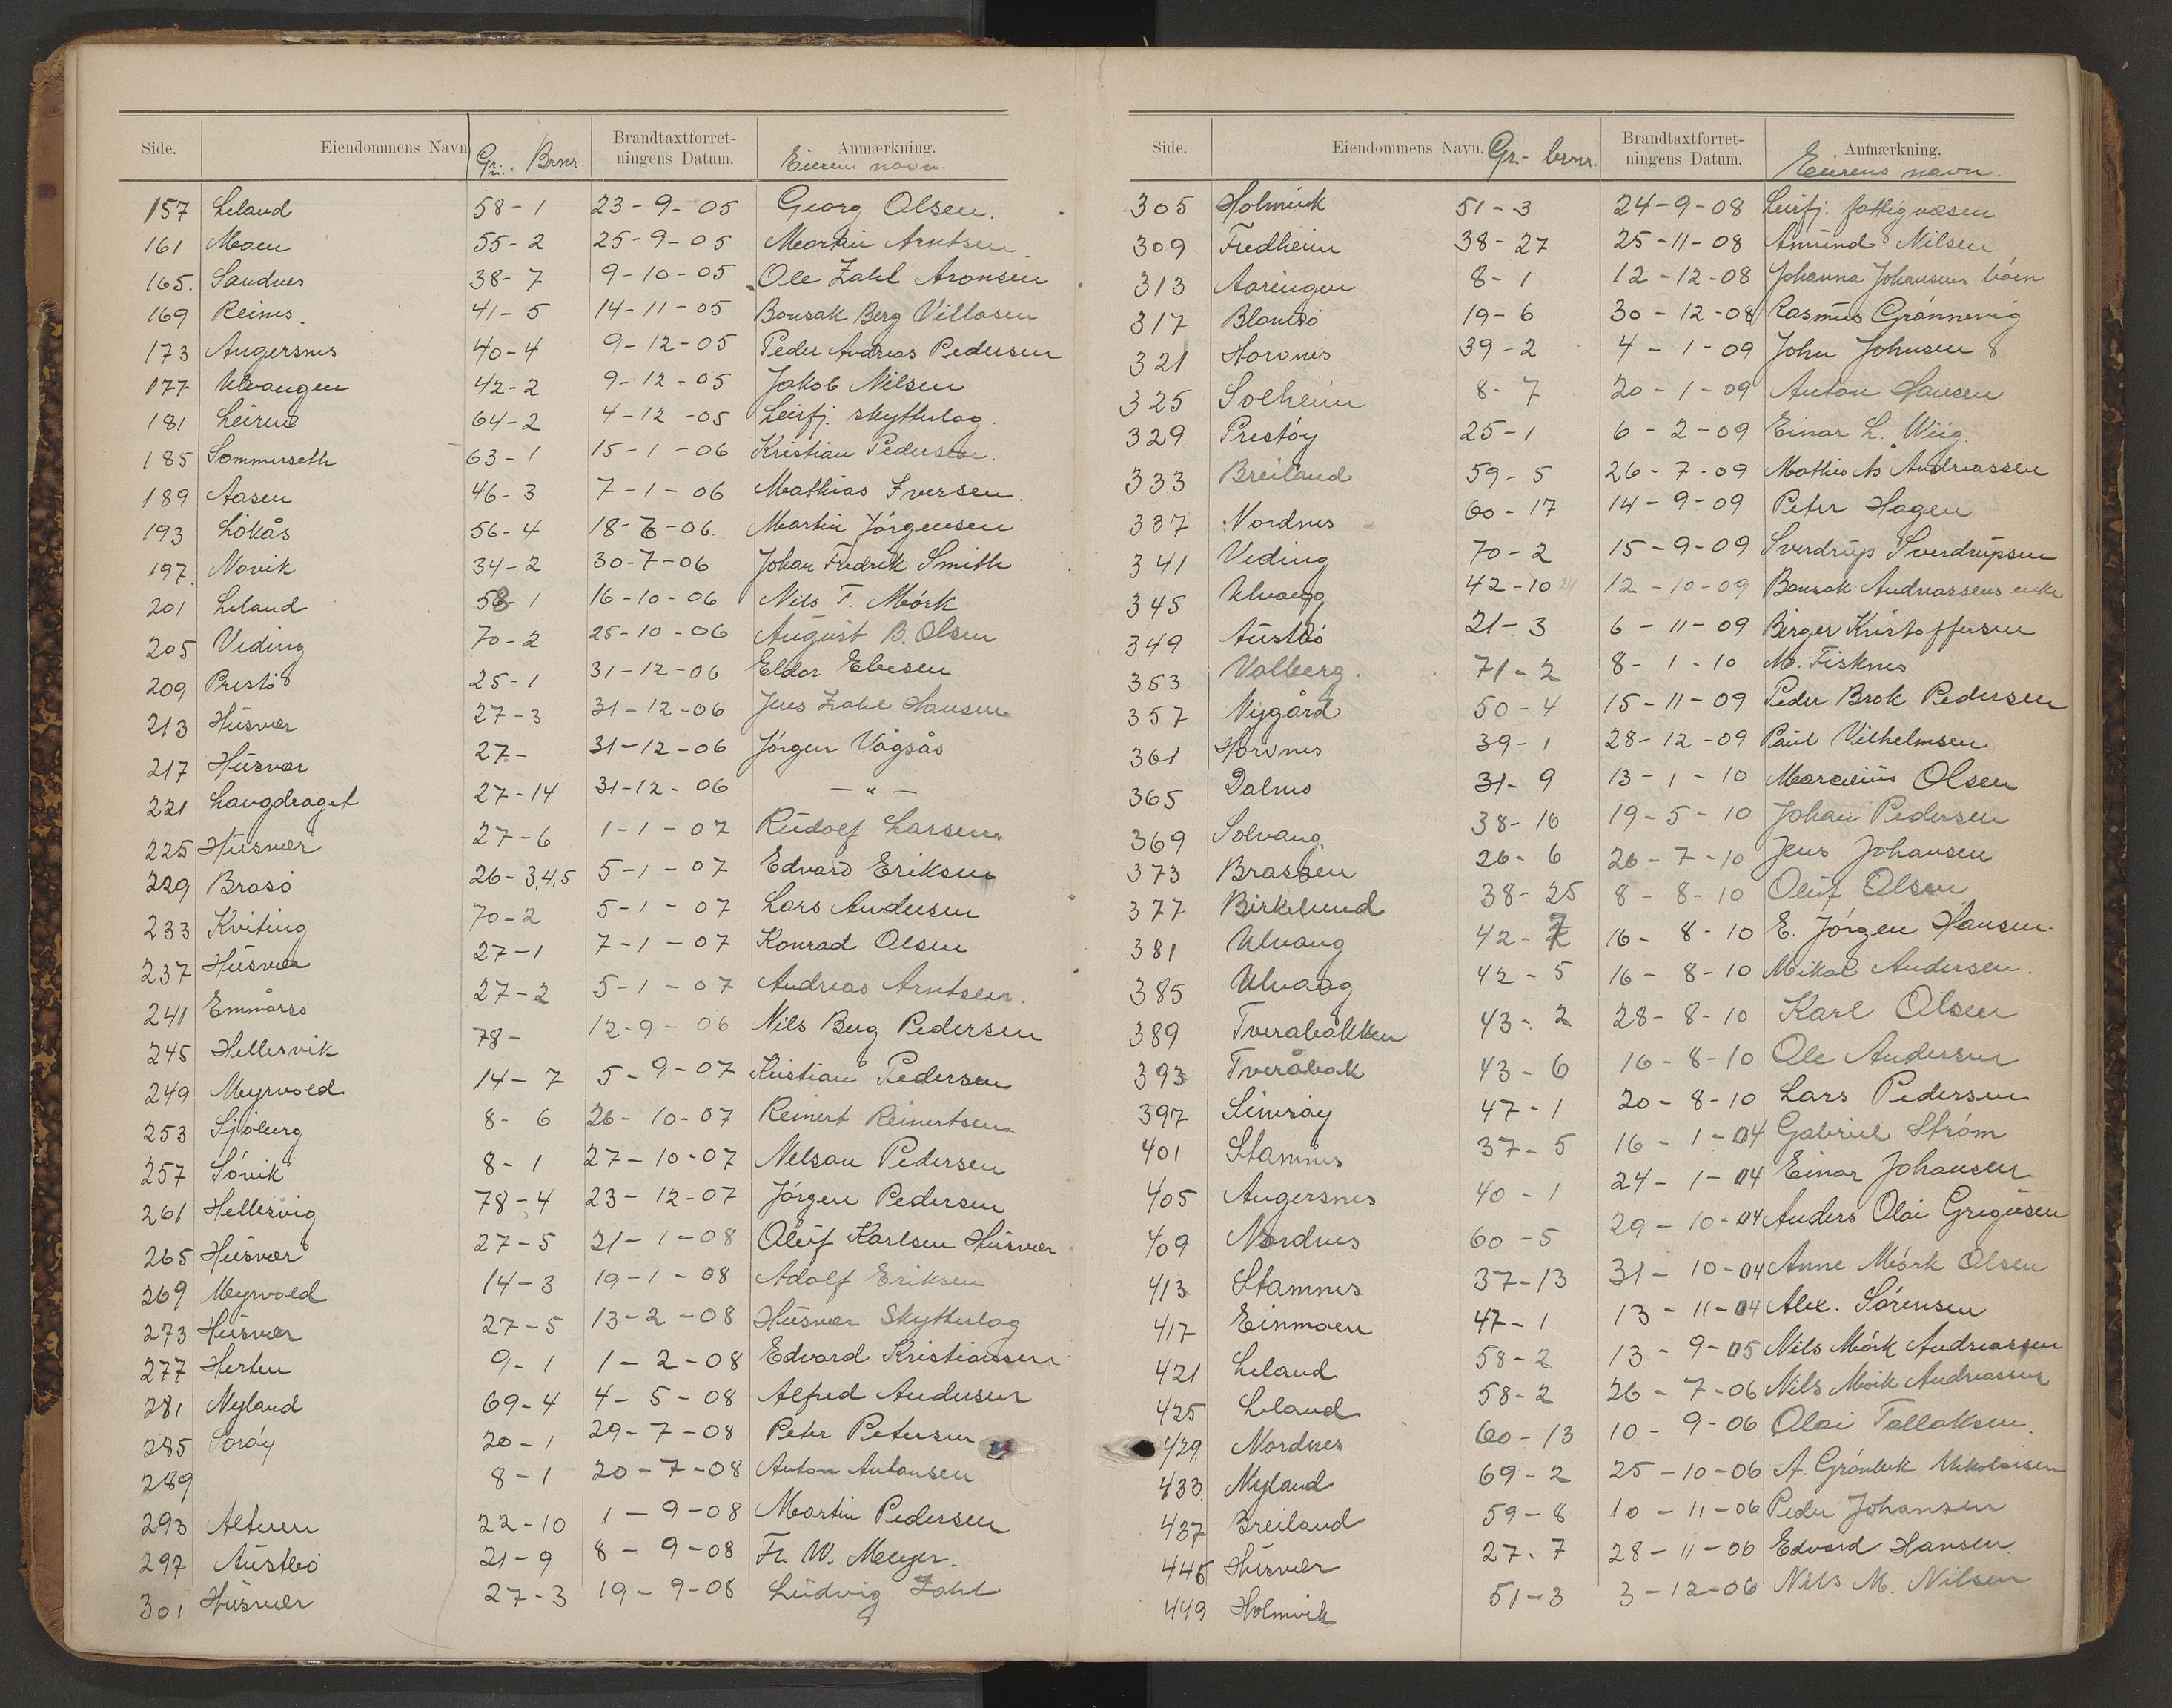 Side. Eiendommens Navn. Gr. Brnr. Brandtaxtforret- Anmærkning.
ningens Datum. Eierens navn.
157 Leland 58-1 23-9-05 Georg Olsen.
161 Moen 55-2 25-9-05 Martin Arntsen
165. Sandnes 38-7 9-10-05 Ole Zahl Aronsen
169 Reines. 41-5 14-11-05 Bonsak Berg Villasen
173 Angersnes 40-4 9-12-05 Peder Andreas Pedersen
177 Ulvangen 42-2 9-12-05 Jakob Nilsen
181 Leirne 64-2 4-12-05 Leirfj. skytterlag.
185 Sommerseth 63-1 15-1-06 Kristian Pedersen.
189 Aasen 46-3 7-1-06 Mathias Iversen.
193 Lökås 56-4 18-7-06. Martin Jörgensen
197. Novik 34-2 30-7-06 Johan Fredrik Smith
201 Leland 58-1 16-10-06 Nils T. Mörk
205 Veding 70-2 25-10-06 August B. Olsen
209 Prestö 25-1 31-12-06 Eldor Ebesen
213 Husvær 27-3 31-12-06 Jens Zahl Hansen
217 Husvær 27- 31-12-06 Jörgen Vågsås
221 Langdraget 27-14 31-12-06 — " —
225 Husvær 27-6 1-1-07 Rudolf Larsen
229 Brasö 26-3,4,5 5-1-07 Edvard Eriksen
233 Kviting 70-2 5-1-07 Lars Andersen
237 Husvær 27-1 7-1-07 Konrad Olsen
241 Emmårsö 27-2 5-1-07 Andreas Arntsen.
245 Hellesvik 78- 12-9-06 Nils Berg Pedersen
249 Myrvold 14-7 5-9-07 Kristian Pedersen
253 Sjöberg 8-6 26-10-07 Reinert Reinertsen
257 Sövik 8-1 27-10-07 Nelson Pedersen
261 Hellesvig 78-4 23-12-07 Jörgen Pedersen
265 Husvær 27-5 21-1-08 Oluf Karlsen Husvær
269 Myrvold 14-3 19-1-08 Adolf Eriksen
273 Husvær 27-5 13-2-08 Husvær Skytterlag
277 Herten 9-1 1-2-08 Edvard Kristiansen
281 Nyland 69-4 4-5-08 Alfred Andersen
285 Soröy 20-1 29-7-08 Peter Petersen
289 8-1 20-7-08 Anton Antonsen
293 Alteren 22-10 1-9-08 Martin Pedersen
297 Austbö 21-9 8-9-08 Fr. W. Meyer.
301 Husvær 27-3 19-9-08 Ludvig Zahl
Side. Eiendommens Navn. Gr.- brnr. Brandtaxtforret- Anmærkning.
ningens Datum. Eierens navn.
305 Holmvik 51-3 24-9-08 Leirfj. fattigvæsen
309 Fredheim 38-27 25-11-08 Amund Nilsen
313 Aarengen 8-1 12-12-08 Johanna Johansens börn
317 Blomsö 19-6 30-12-08 Rasmus Grönnevig
321 Horvnes 39-2 4-1-09 John Johnsen
325 Solheim 8-7 20-1-09 Anton Hansen
329. Prestöy 25-1 6-2-09 Einar L. Wiig.
333 Breiland 59-5 26-7-09 Mathis As Andreassen
337 Nordnes 60-17 14-9-09 Peter Hagen
341 Veding 70-2 15-9-09 Sverdrup Sverdrupsen
345 Ulvang 42-10 12-10-09 Bonsak Andreassens enke
349 Austbö 21-3 6-11-09 Birger Kristoffersen
353 Valberg. 71-2 8-1-10 M. Fisknes
357 Nygård 50-4 15-11-09 Peder Brok Pedersen
361 Horvnes 39-1 28-12-09 Paul Vilhelmsen
365 Dalmo 31-9 13-1-10 Marcelius Olsen
369 Solvang. 38-10 19-5-10 Johan Pedersen
373 Brasöen 26-6 26-7-10 Jens Johansen
377 Birkelund 38-25 8-8-10 Oluf Olsen
381 Ulvang 42-7 16-8-10 E. Jörgen Hansen.
385 Ulvang 42-5 16-8-10 Mikal Andersen.
389 Tverabakken 43-2 28-8-10 Karl Olsen
393 Tveråbak 43-6 16-8-10 Ole Andersen
397 Simröy 47-1 20-8-10 Lars Pedersen
401 Stamnes 37-5 16-1-04 Gabriel Ström
405 Angersnes 40-1 24-1-04 Einar Johansen
409 Nordnes 60-5 29-10-04 Anders Olai Gregusen
413 Stamnes 37-13 31-10-04 Anne Mörk Olsen
417 Einmoen 47-1 13-11-04 Alex. Sörensen
421 Leland 58-2 13-9-05 Nils Mörk Andreassen
425 Leland 58-2 26-7-06 Nils Mörk Andreassen
429. Nordnes 60-13 10-9-06 Olai Tollaksen.
433. Nyland 69-2 25-10-06 A. Grönbek Nikolaisen
437 Breiland 59-8 10-11-06 Peder Johansen
445 Husvær 27-7 28-11-06 Edvard Hansen.
449 Holmvik 51-3 3-12-06 Nils M. Nilsen